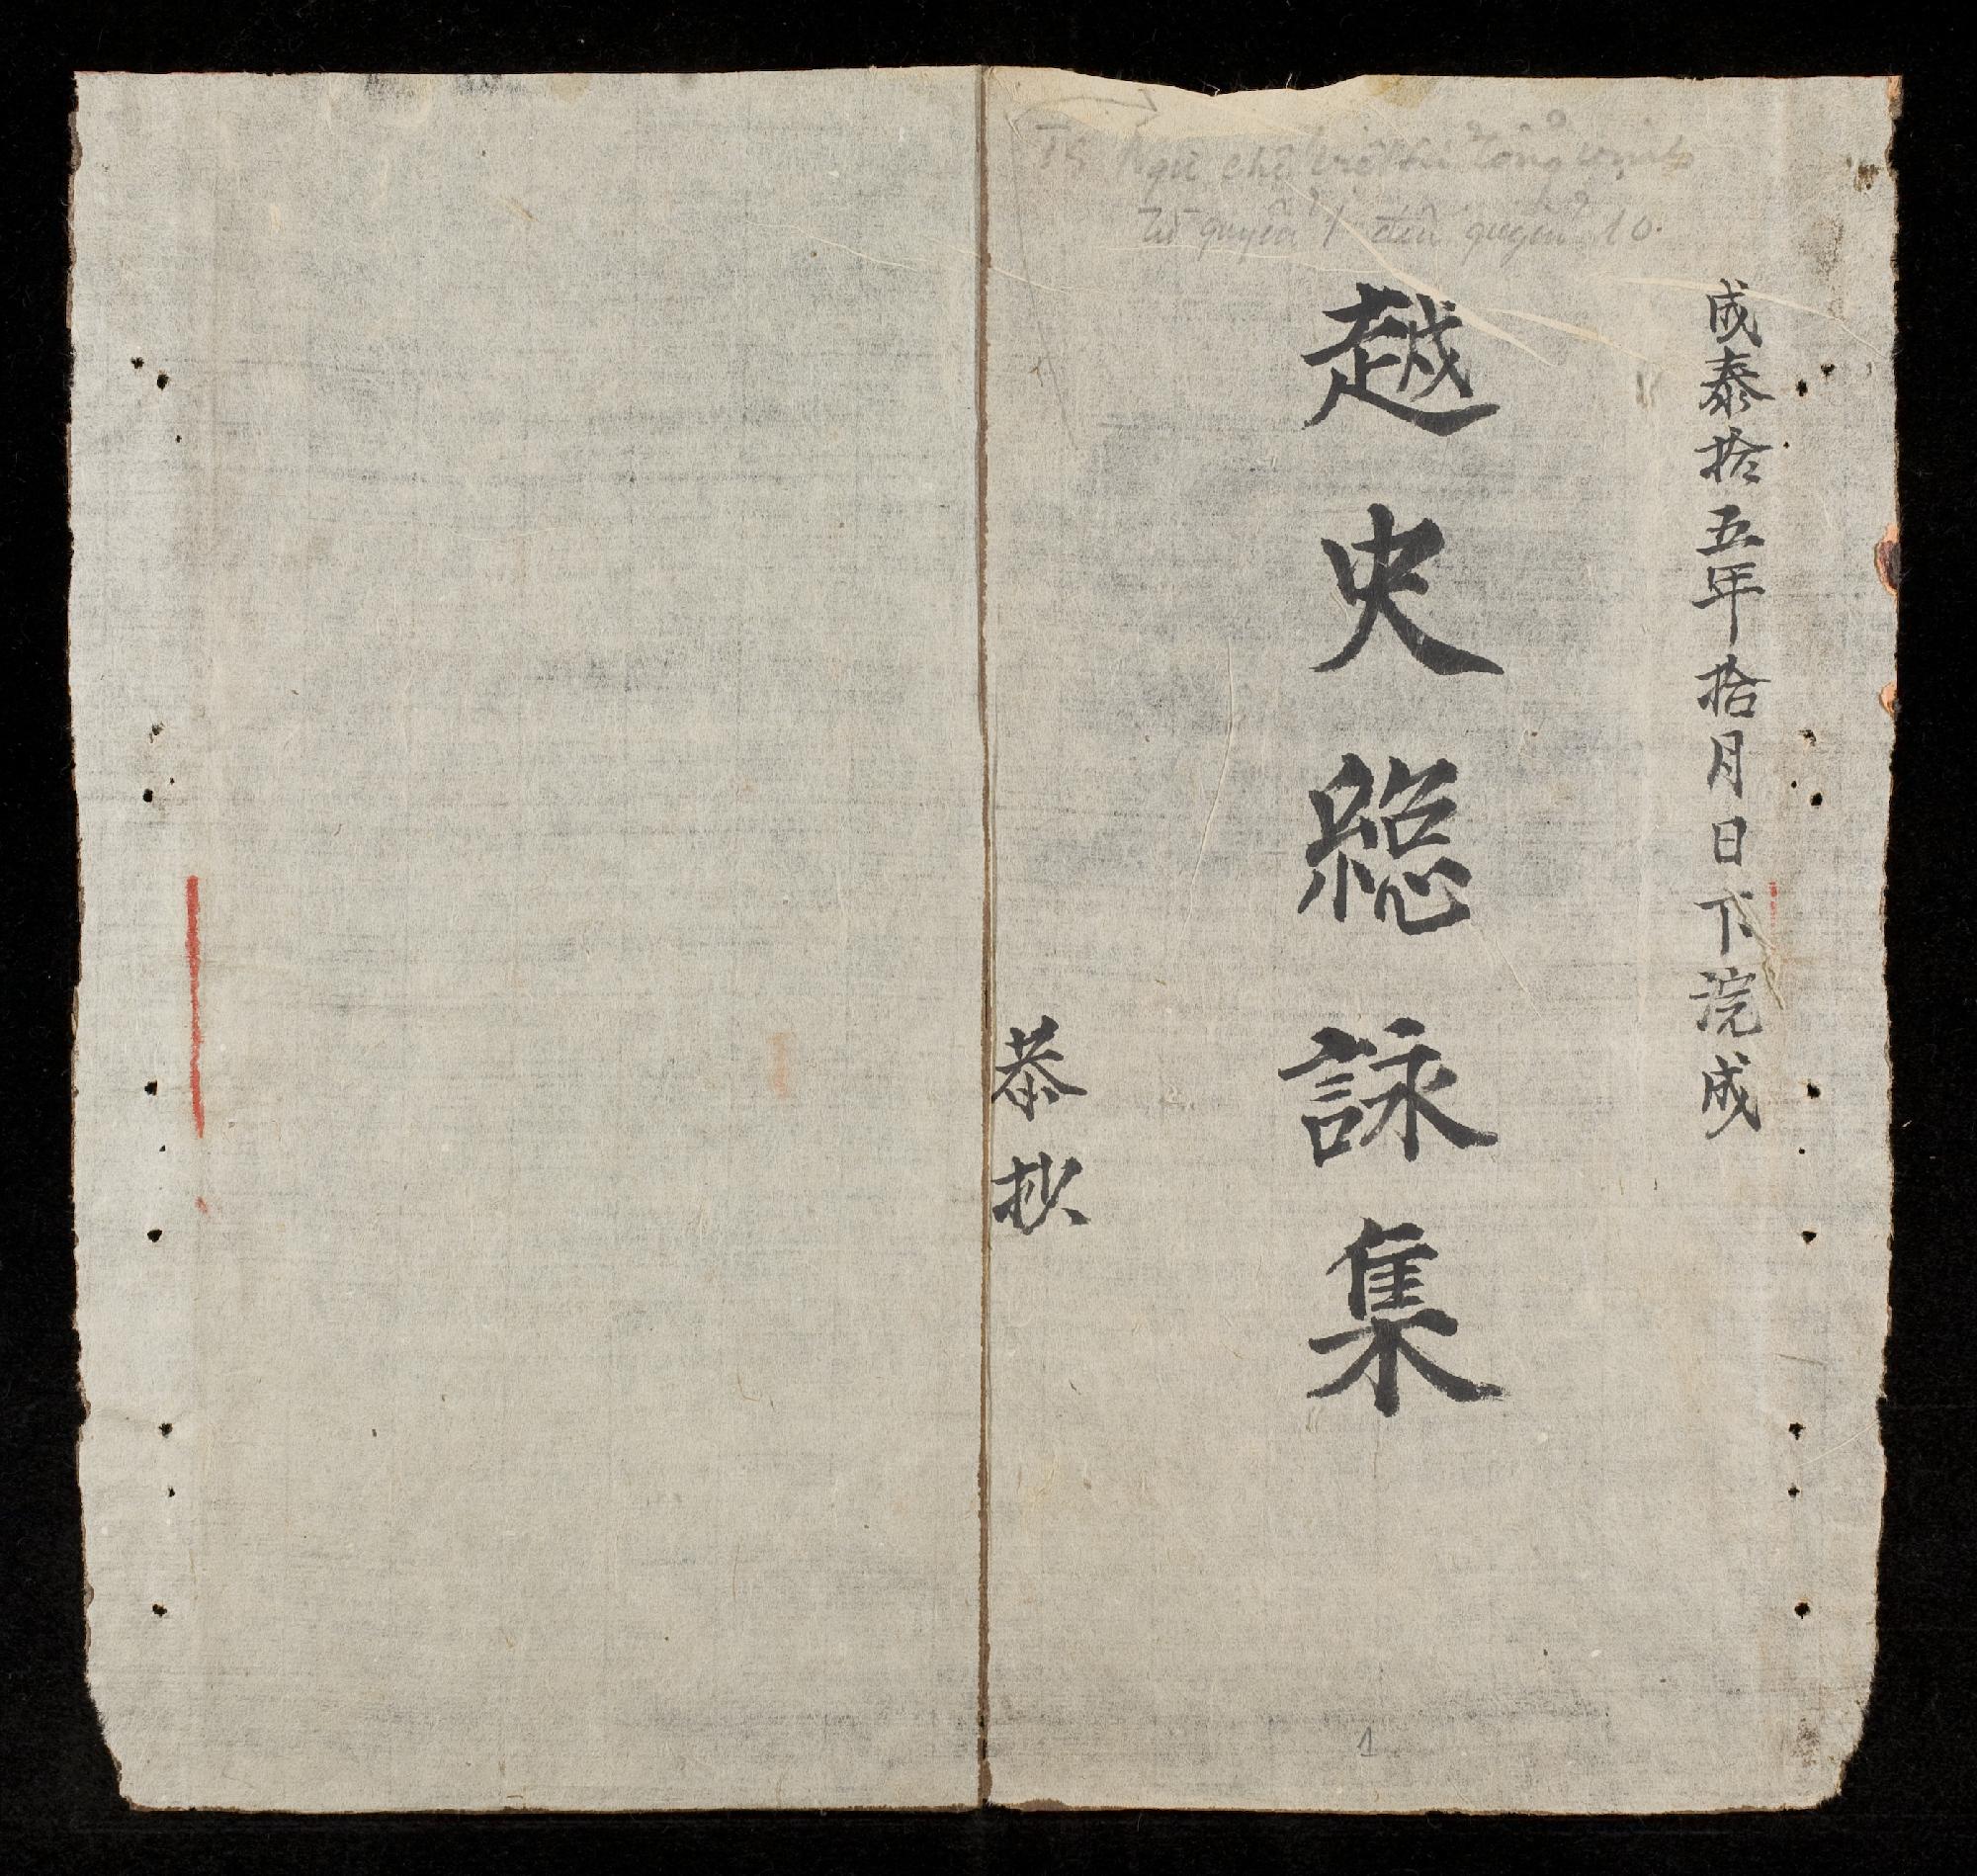 Ngự chế việt sử tổng vịnh
từ quyển 1 đến quyển 10.
成泰拾五年拾月日下浣成
越史總詠集
恭抄
1